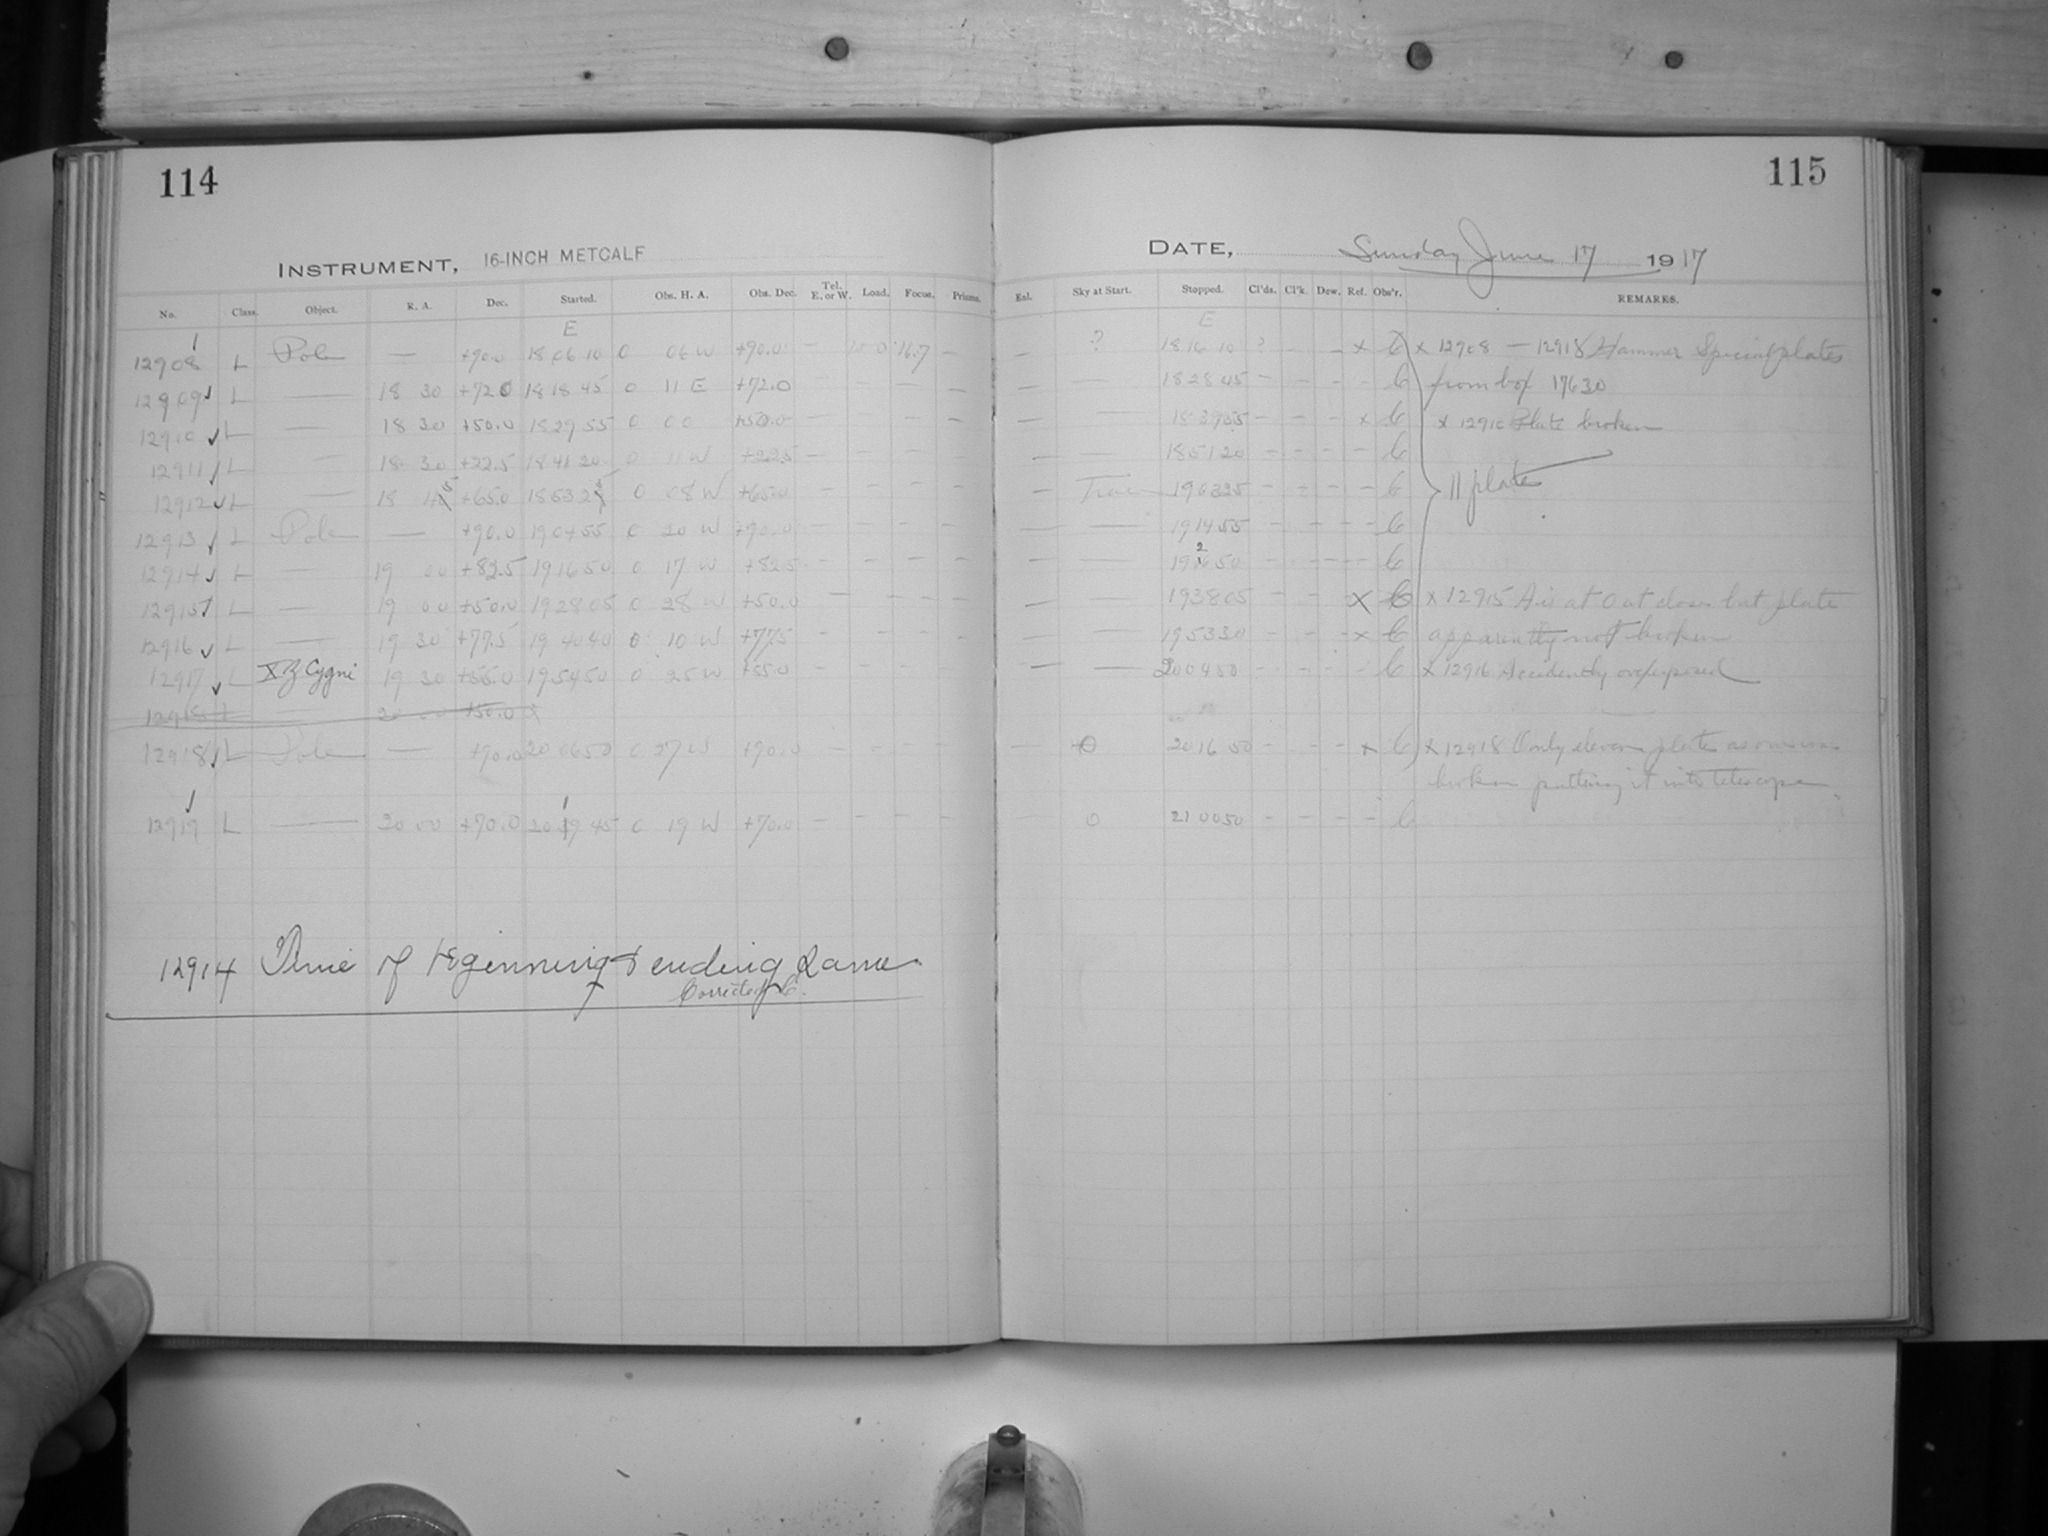 114
INSTRUMENT, 16-INCH METCALF
No. Class. Object. R. A. Dec. Started. Obs. H. A. Obs. Dec. Tel. E. or W. Load. Focus. Prisms.
E
12908 L Pole — +90.0 18 06 10 0 06 W +90.0 — 16.7 —
12909 L — 18 30 +72.0 18 18 45 0 11 E +72.0 — — —
12910 L — 18 30 +50.0 18 29 55 0 00 +50.0 — — —
12911 L — 18 30 +22.5 18 41 20 0 11 W +22.5 — — — —
12912 L — 18 45 +65.0 18 53 25 0 08 W +65.0 — — — —
12913 L Pole — +90.0 19 04 55 0 20 W +90.0 — — — —
12914 L — 19 00 +82.5 19 16 50 0 17 W +82.5 — — — —
12915 L — 19 00 +50.0 19 28 05 0 28 W +50.0 — — — —
12916 L — 19 30 +77.5 19 40 40 0 10 W +77.5 — — — —
12917 L XZ Cygni 19 30 +55.0 19 54 50 0 25 W +55.0 — — — —
12918 L 20 00 +50.0
12918 L Pole — +90.0 20 06 50 0 27 W +90.0 — — — —
12919 L — 20 00 +70.0 20 19 45 0 19 W +70.0 — — — —
12914 Time of beginning & ending same.
Corrected C.
115
DATE, Sunday June 17 1917
Eal. Sky at Start. Stopped. Cl'ds. Cl'k. Dew. Ref. Obs'r. REMARKS.
E
— ? 18 16 10 ? — — x C x 12908 — 12918 Hammer Special plates
— — 18 28 45 — — — — C from box 17630
— — 18 39 55 — — — x C x 12910 Plate broken
— — 18 51 20 — — — — C
— 19 03 25 — — — — C 11 plates
— — 19 14 55 — — — — C
— — 19 26 50 — — — — C
— — 19 38 05 — — — x C x 12915 A is at 0 at close but plate
— — 19 53 30 — — — x C apparently not broken
— — 20 04 50 — — — — C x 12916 Accidently overexposed
— 0 20 16 50 — — — x C x 12918 Only eleven plates as one was
broken putting it into telescope.
— 0 21 00 50 — — — — C